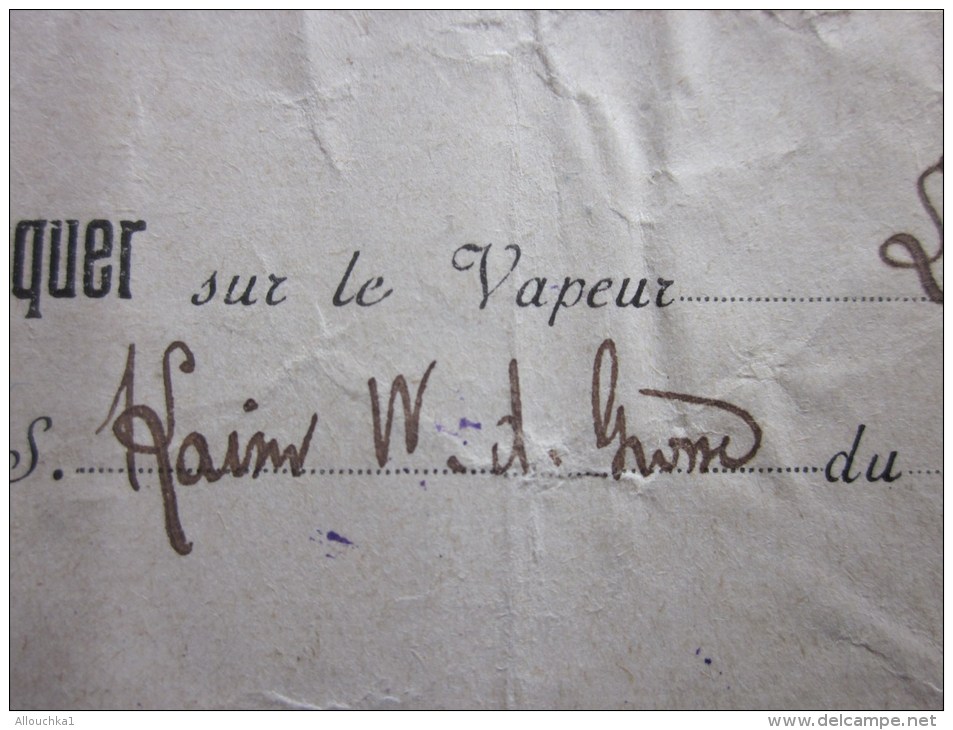 quer sur le Vapeur
S. Kaiser W. d. Grosse du
Allouchka1
www.delcampe.net